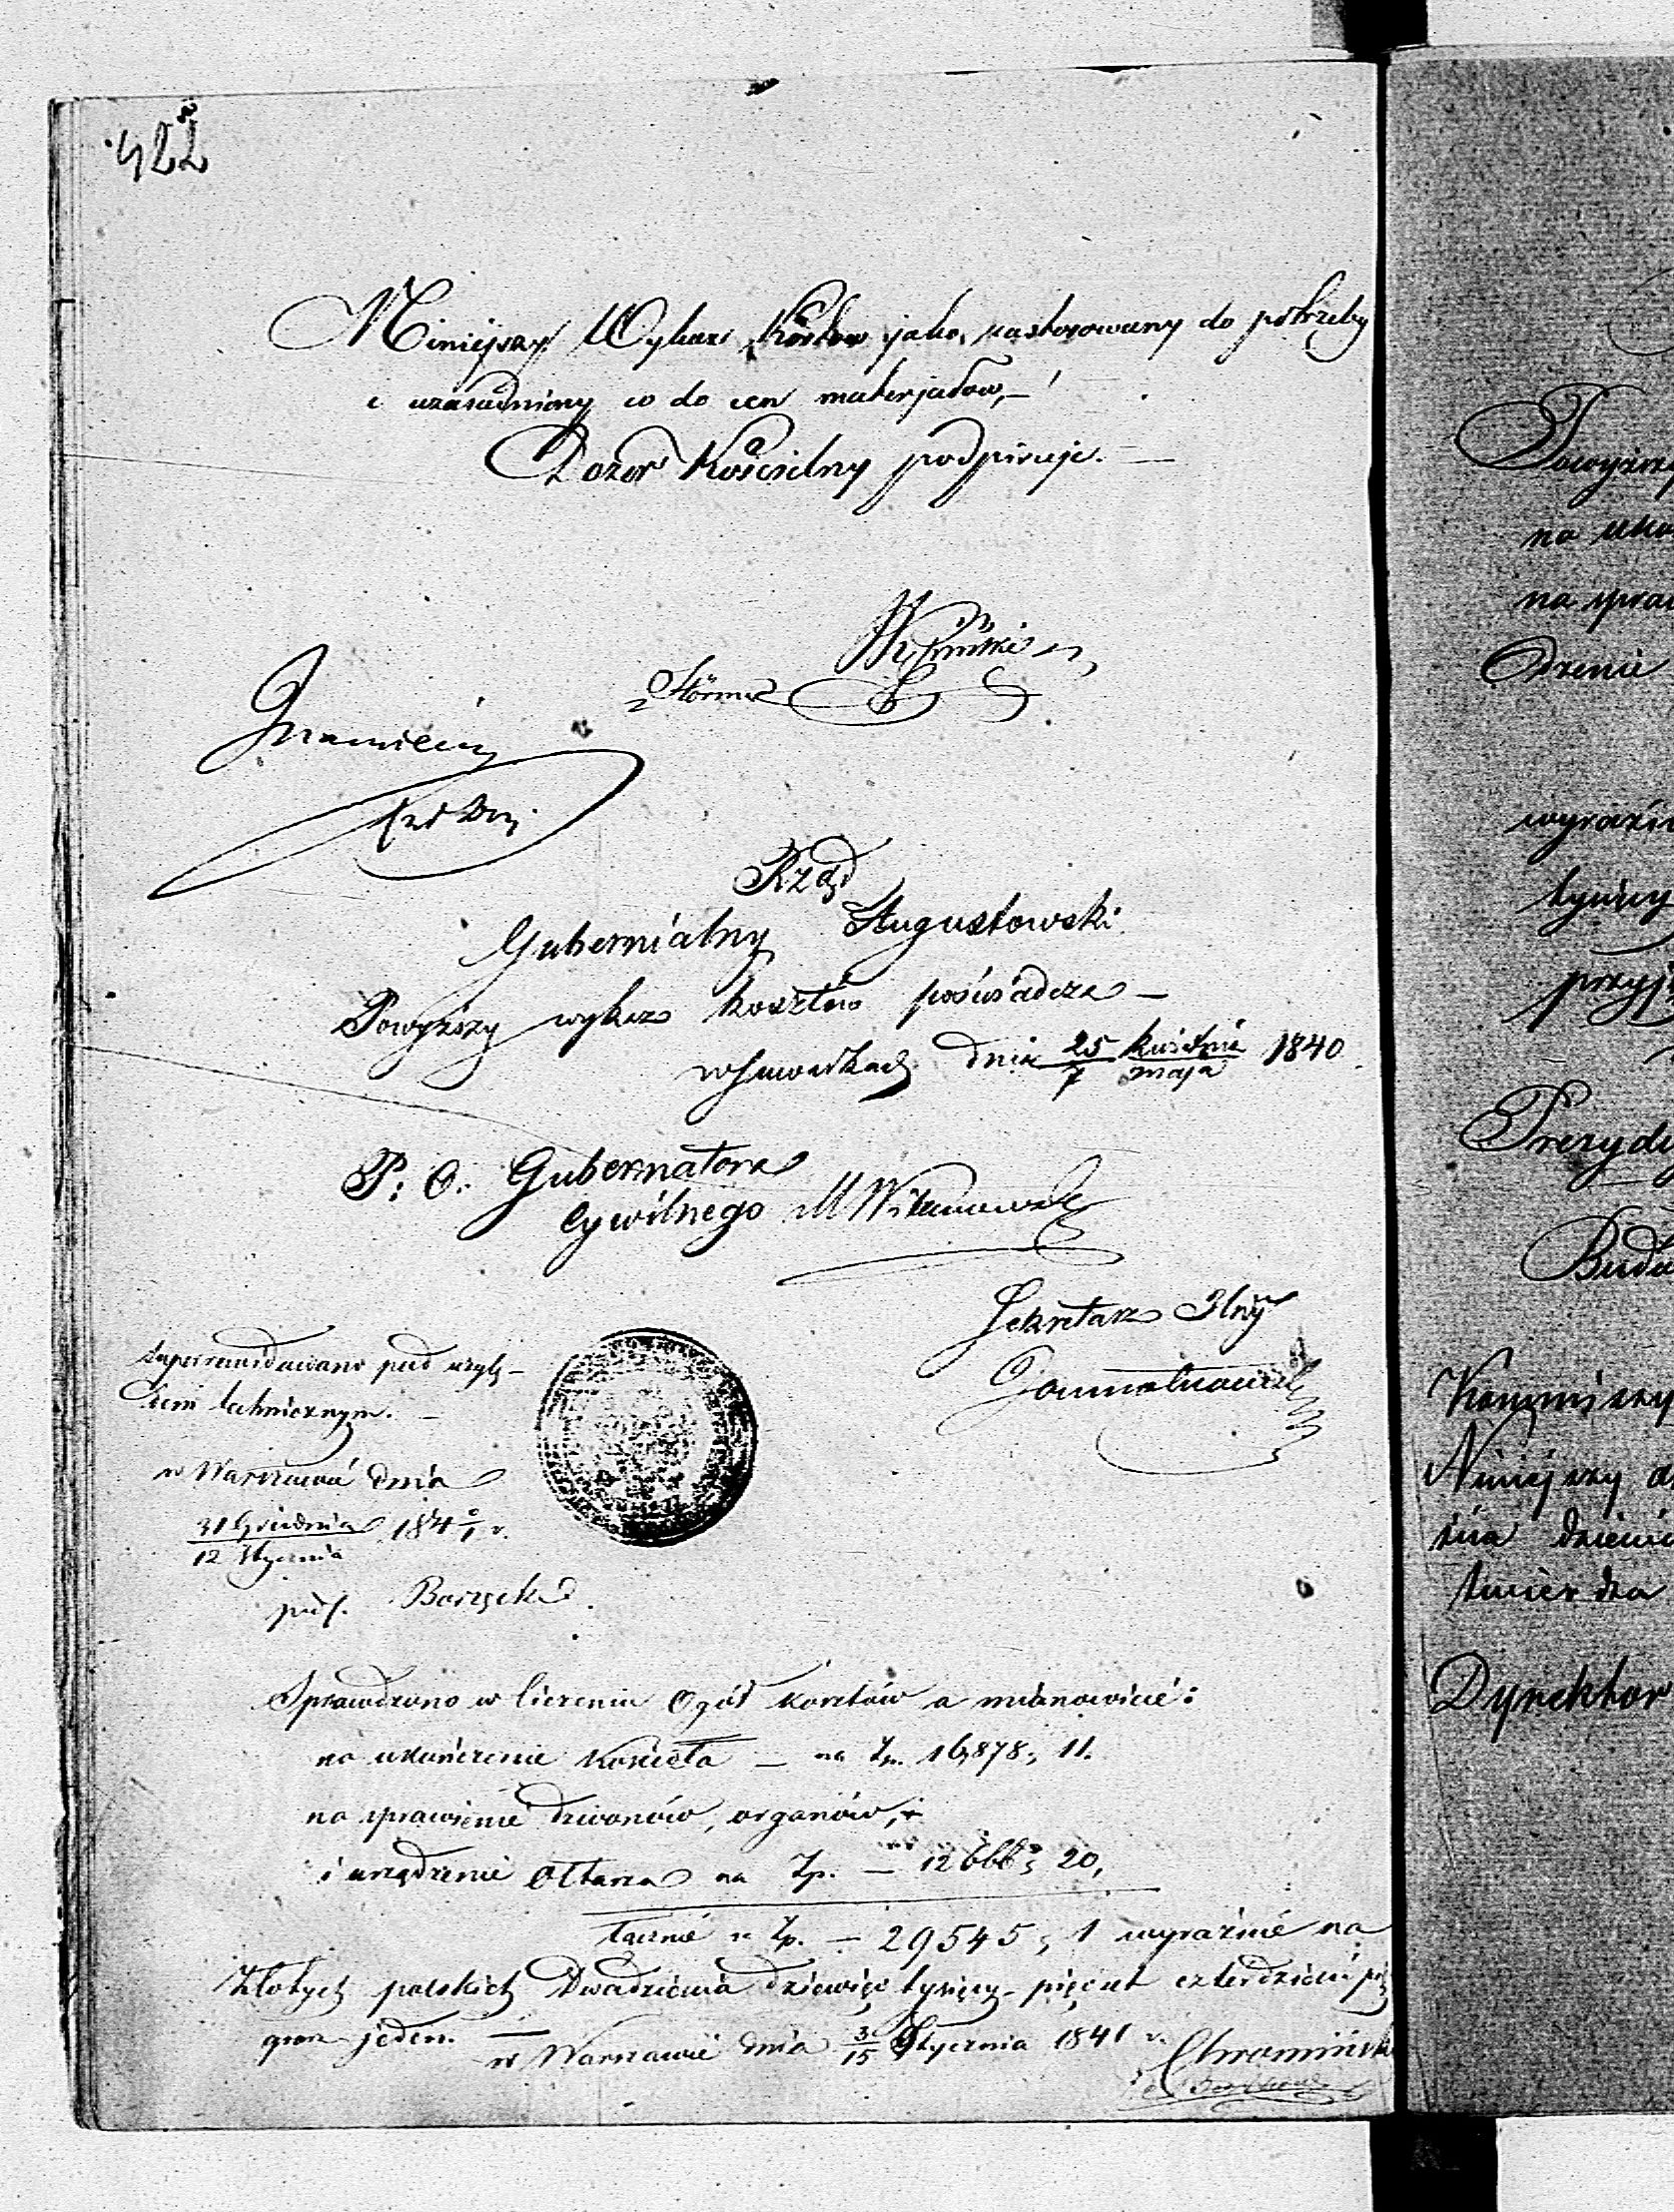 422
Niniejszy Wykaz Kosztów jako zastosowany do potrzeby
i uzasadniony co do cen materjałów,—
Dozór Kościelny podpisuje.—
Rząd
Gubernialny Augustowski
Powyższy wykaz kosztów poświadcza —
w Suwałkach dnia 25 kwietnia / 7 maja 1840
P: O: Gubernatora
Cywilnego
Sekretarz Jlny
Superrewidowano pod wzglę-
dem technicznym. —
w Warszawie dnia
31 Grudnia / 12 Stycznia 184 0/1 r.
Sprawdzono w liczeniu Ogół kosztów a mianowicie:
na ukończenie Kościoła — na Zp. 16,878; 11.
na sprawienie dzwonów, organów,
i urządzenie Ołtarza na Zp. — 12666; 20,
łącznie n Zp. — 29545; 1 wyraźnie na
Złotych polskich Dwadzieścia dziewięć tysięcy pięćset czterdzieści pięć
grosz jeden. —
w Warszawie dnia 3/15 Stycznia 1841 r. Chromiński
Powyższy
na uko
na spra
dzenie
wyraźn
tysięcy
przyj
Prezydu
Budo
Kommissy
Niniejszy
dzieni
twierdza
Dyrektor